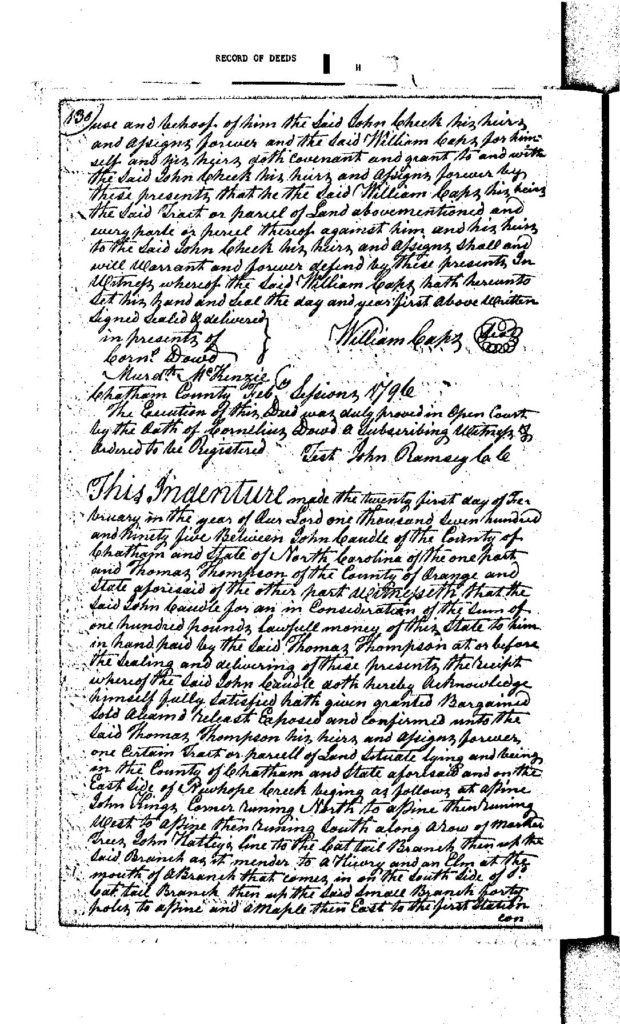 RECORD OF DEEDS
H
130
use and behoof of him the Said John Cheek his heirs
and Assigns forever and the Said William Caps for him
self and his heirs doth Covenant and grant to and with
the Said John Cheek his heirs and Assigns forever by
these presents that he the Said William Caps his heirs
the Said Tract or parcel of Land abovementioned and
every parte or percel thereof against him and his heirs
to the Said John Cheek his heirs and Assigns Shall and
will Warrant and forever defend by these presents In
Witness whereof the Said William Caps hath hereunto
Set his hand and Seal the day and year first above Written
Signed Sealed & delivered
in presents of
William Caps Seal
Corn.s Dowd
Murd.th McKenzie
Chatham County Feb.y Sessions 1796
The Execution of this Deed was duly proved in Open Court
by the Oath of Cornelius Dowd a Subscribing Witness &
Ordered to be Registered
Test John Ramsey C C
This Indenture made the twenty first day of Fe-
bruary in the year of Our Lord one thousand Seven hundred
and Ninty five Between John Caudle of the County of
Chatham and State of North Carolina of the one part
and Thomas Thompson of the County of Orange and
State aforisaid of the other part Witnesseth that the
Said John Caudle for an in Consideration of the Sum of
one hundred pounds Lawfull money of this State to him
in hand paid by the Said Thomas Thompson at or before
the Sealing and delivering of these presents the receipt
whereof the Said John Caudle doth hereby Acknowledge
himself fully Satisfied hath given granted Bargained
Sold releast Exposed and Confirmed unto the
Said Thomas Thompson his heirs and Assigns forever
one Certain Tract or parcell of Land Situate lying and being
in the County of Chatham and State aforisaid and on the
East Side of Newhope Creek begining as follows at a Pine
John Kings Corner runing North to a Pine then runing
West to a Pine then runing South along a row of Marked
Trees John line to the Cat tail Branch then up the
Said Branch as it mender to a and an Elm at the
mouth of a Branch that comes in on the South Side of S.d
Cat tail Branch then up the Said Small Branch forty
poles to a Pine and a Maple then East to the first Station
con